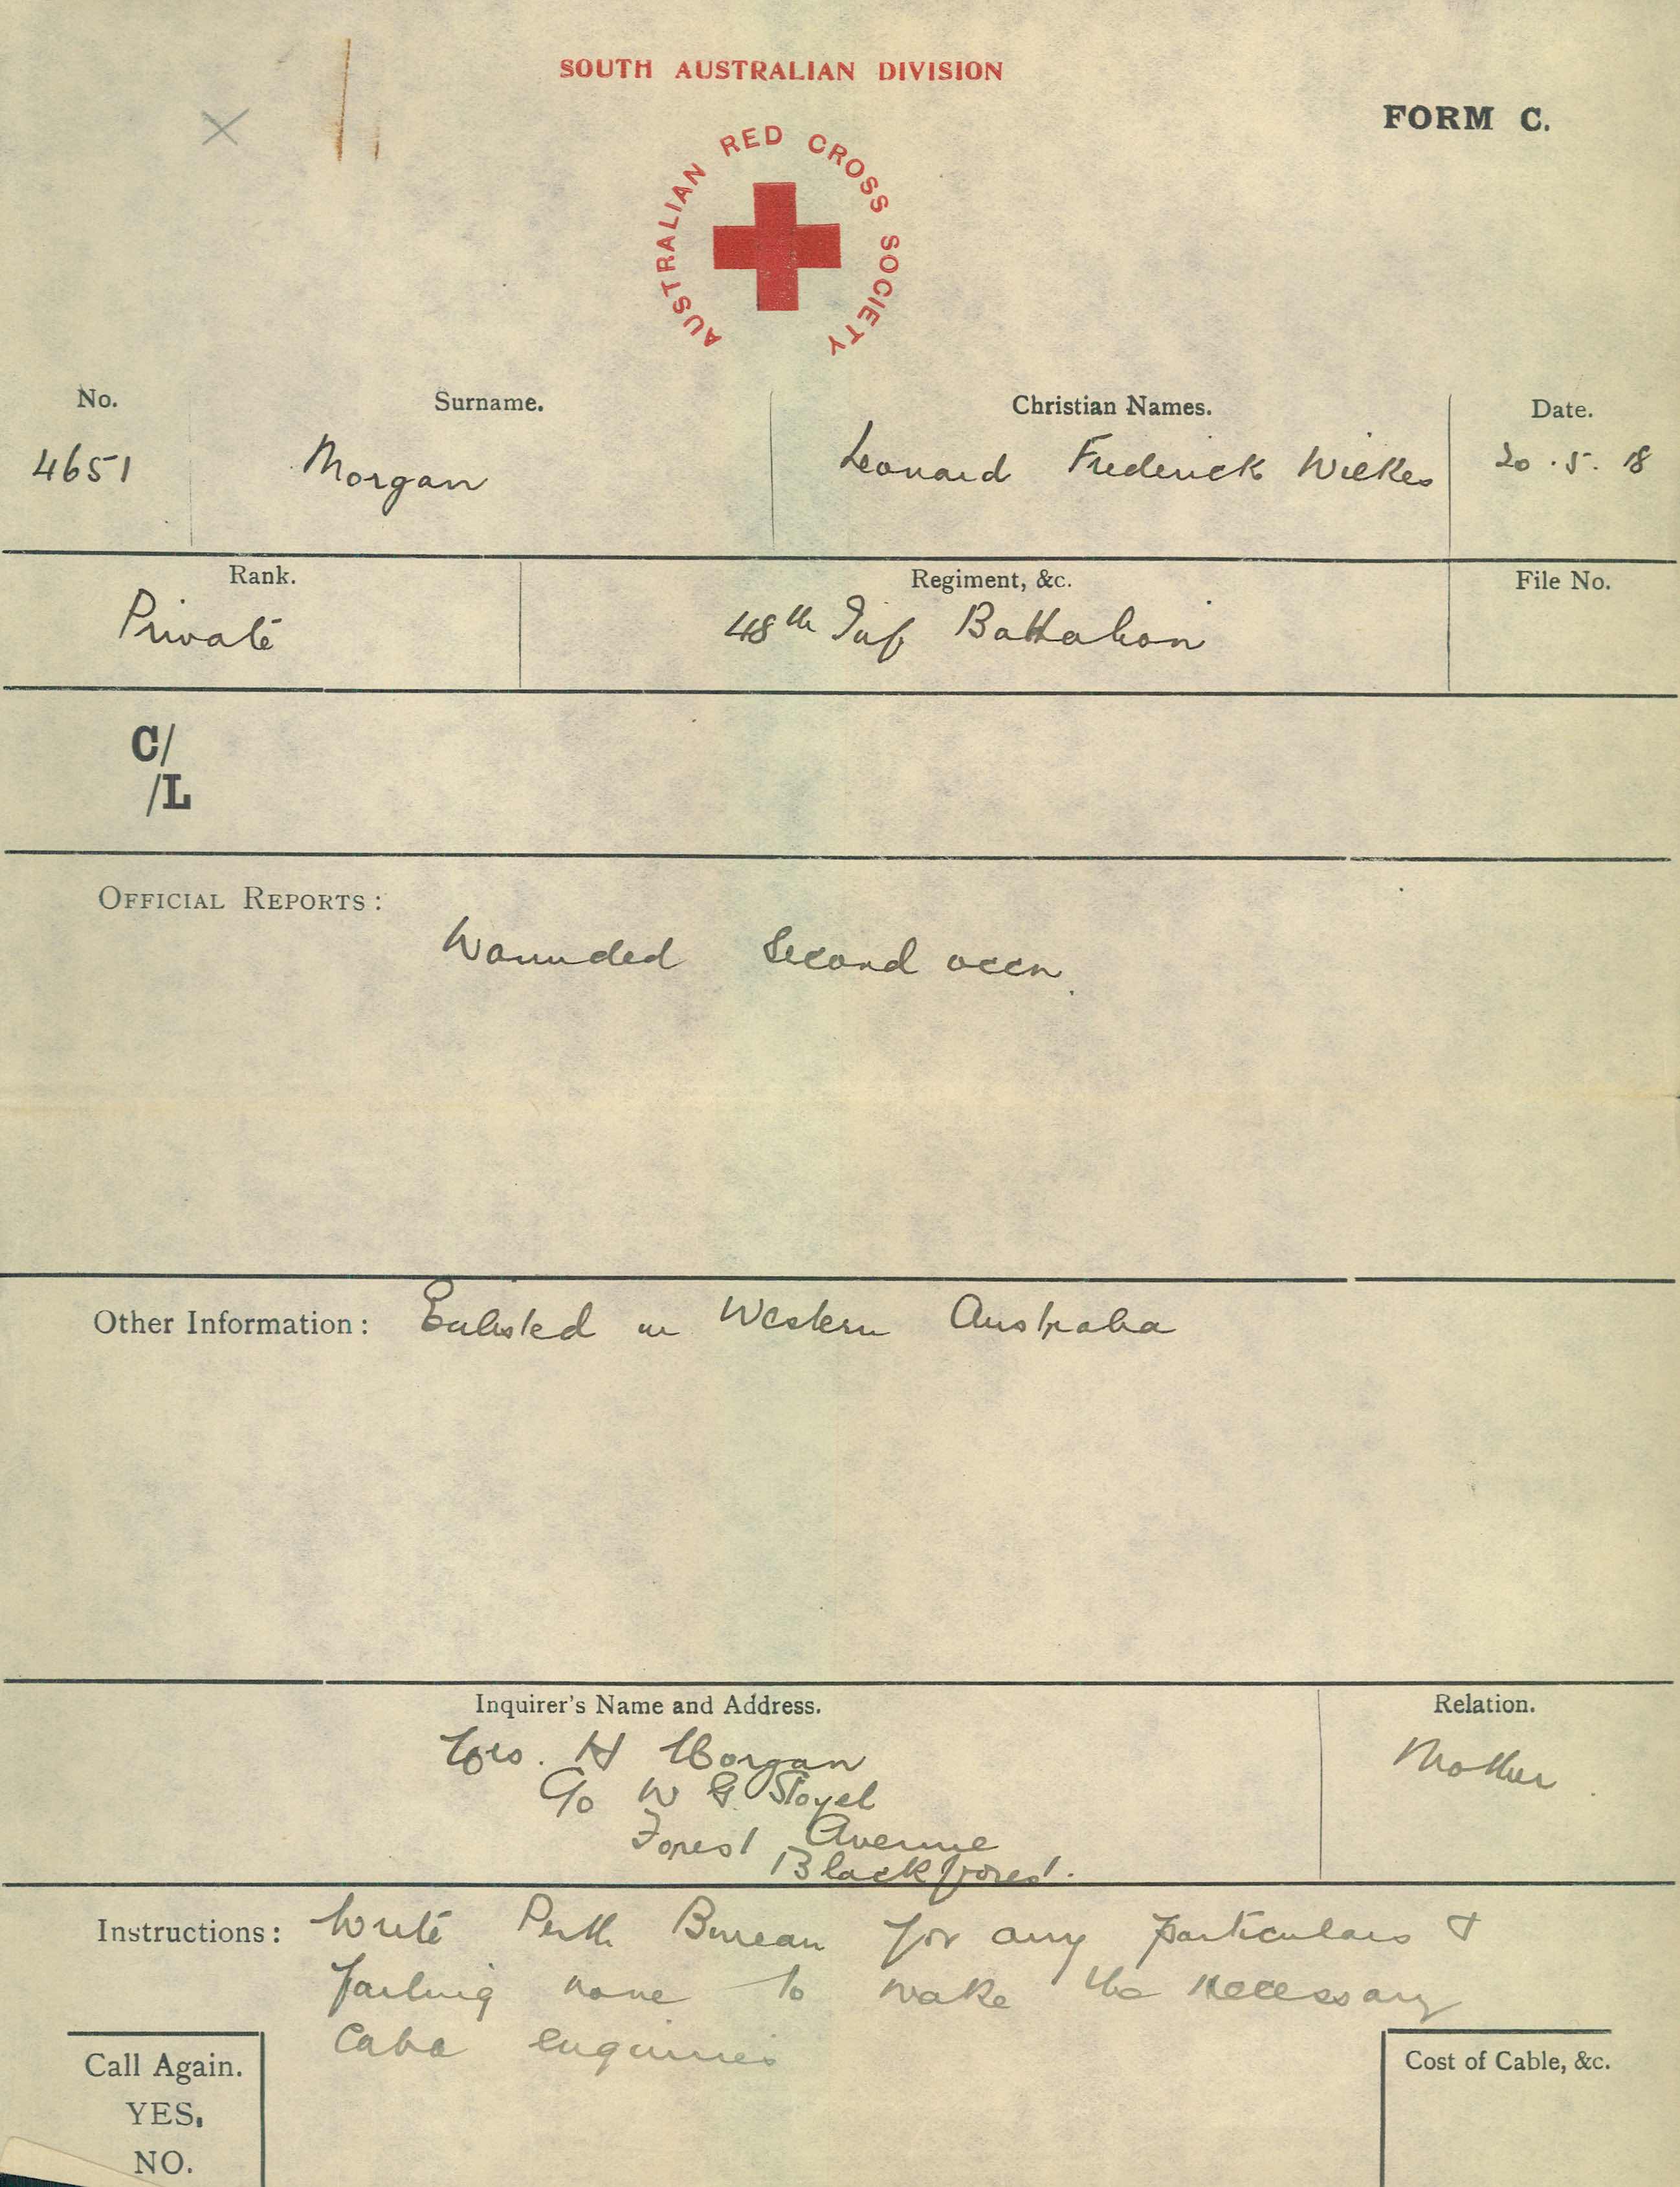 SOUTH AUSTRALIAN DIVISION
FORM C.
AUSTRALIAN RED CROSS SOCIETY
No. Surname. Christian Names. Date.
4651 Morgan Leonard Frederick Wilkes 20.5.18
Rank. Regiment, &c. File No.
Private 48th Inf Battalion
C/
/L
OFFICIAL REPORTS:
Wounded Second occn.
Other Information: Enlisted in Western Australia
Inquirer's Name and Address. Relation.
Mrs. H Morgan Mother
C/o W G Stoyel
Forest Avenue
Black forest.
Instructions: Write Perth Bureau for any particulars &
failing none to make the necessary
Cable enquiries
Call Again.
YES.
NO.
Cost of Cable, &c.